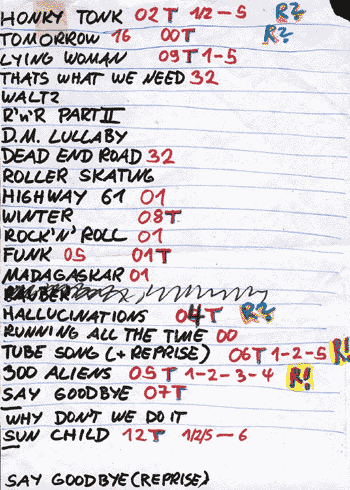 HONKY TONK 02 T 1/2-5 R?
TOMORROW 16 00T R?
LYING WOMAN 09T 1-5
THATS WHAT WE NEED 32
WALTZ
R'N'R PART II
D.M. LULLABY
DEAD END ROAD 32
ROLLER SKATING
HIGHWAY 61 01
WINTER 08T
ROCK'N'ROLL 01
FUNK 05 01T
MADAGASKAR 01
HALLUCINATIONS 04T R?
RUNNING ALL THE TIME 00
TUBE SONG (+REPRISE) 06T 1-2-5 R!
300 ALIENS 05T 1-2-3-4 R!
SAY GOODBYE 07T
WHY DON'T WE DO IT
SUN CHILD 12T 1/2/5-6
SAY GOODBYE (REPRISE)